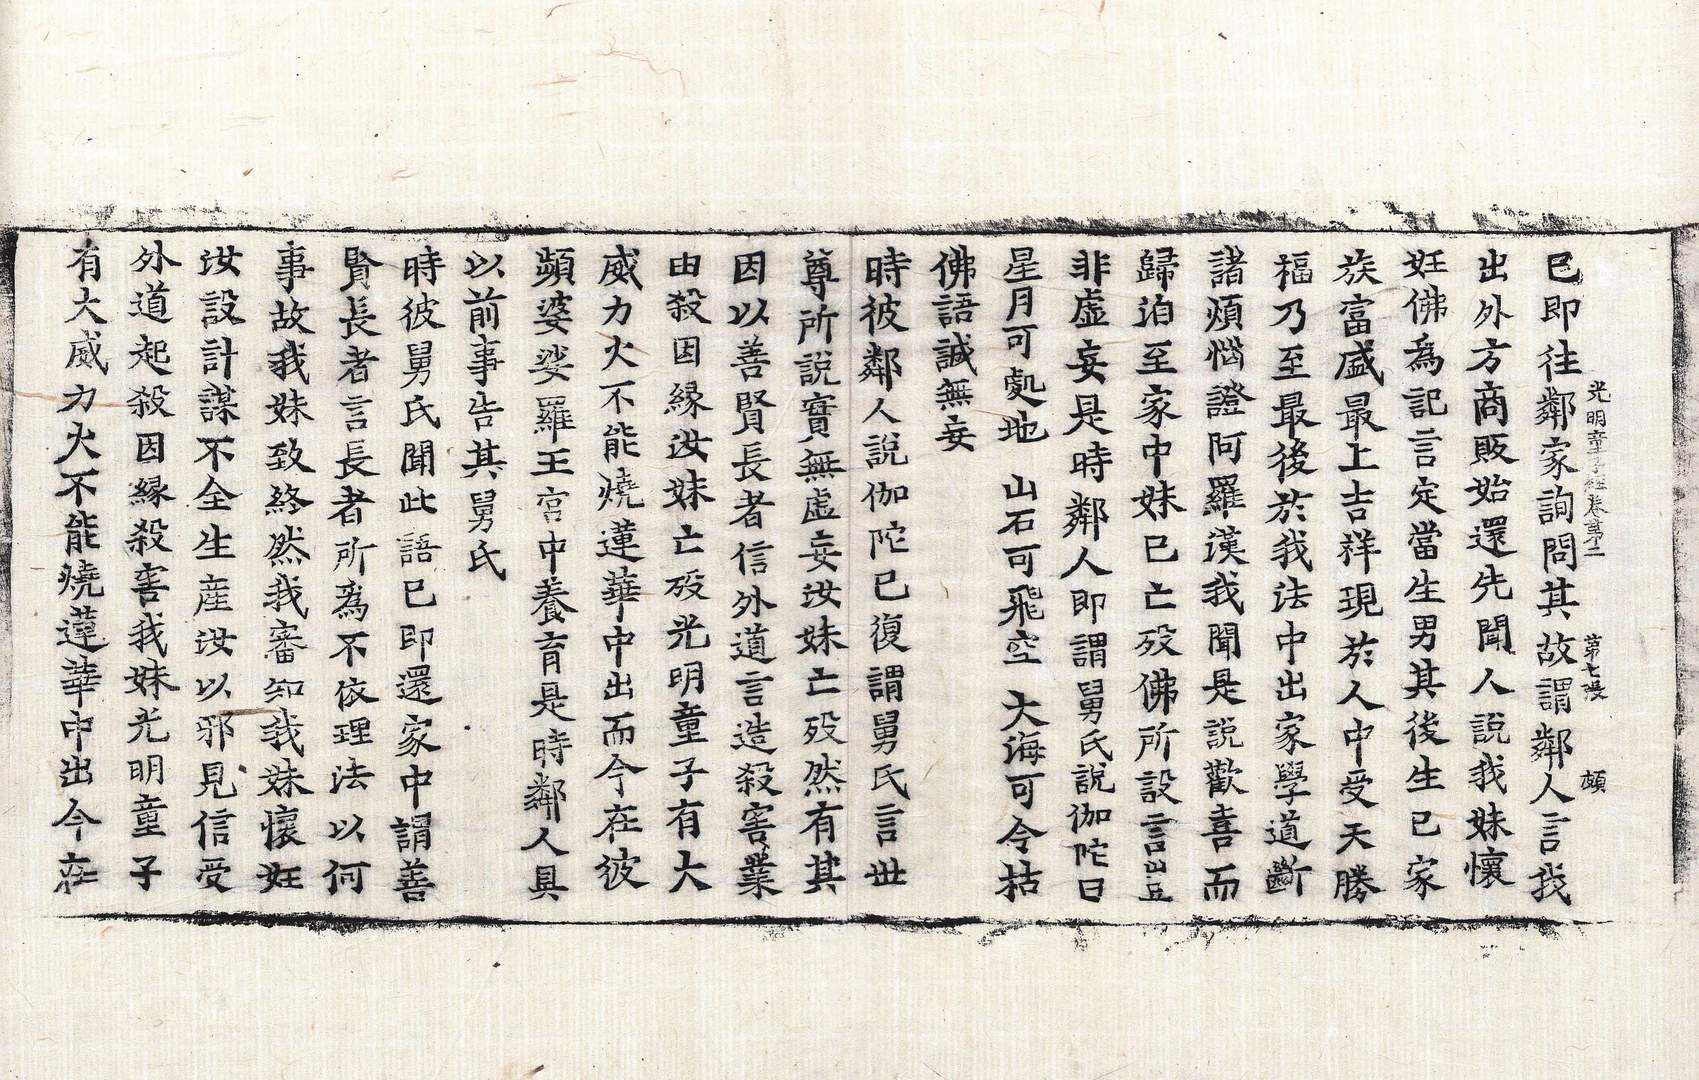 光明童子經卷第二　第七張　頗
已即往鄰家詢問其故謂鄰人言我
出外方商販始還先聞人說我妹懷
妊佛為記言定當生男其後生已家
族富盛最上吉祥現於人中受天勝
福乃至最後於我法中出家學道斷
諸煩惱證阿羅漢我聞是說歡喜而
歸洎至家中妹已亡歿佛所設言豈
非虛妄是時鄰人即謂舅氏說伽陀曰
星月可處地　山石可飛空　大海可令枯
佛語誠無妄
時彼鄰人說伽陀已復謂舅氏言世
尊所說實無虛妄汝妹亡歿然有其
因以善賢長者信外道言造殺害業
由殺因緣汝妹亡歿光明童子有大
威力火不能燒蓮華中出而今在彼
頻婆娑羅王宮中養育是時鄰人具
以前事告其舅氏
時彼舅氏聞此語已即還家中謂善
賢長者言長者所為不依理法以何
事故我妹致終然我審知我妹懷妊
汝設計謀不全生產汝以邪見信受
外道起殺因緣殺害我妹光明童子
有大威力火不能燒蓮華中出今在